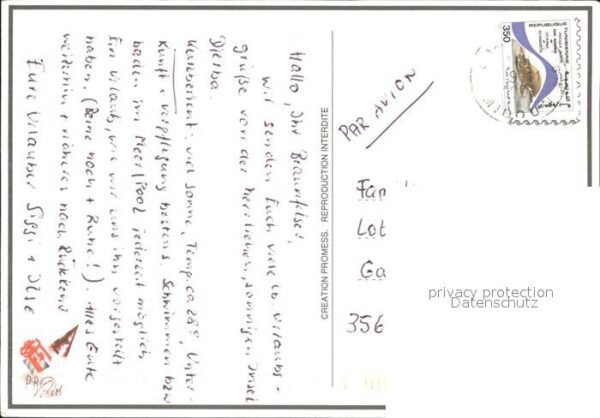 Hallo, Ihr Braunfelser,
wir senden Euch viele lb. Urlaubs-
grüße von der herrlichen, sonnigen Insel
Djerba
viel Sonne, Temp. ca 28°, Unter-
kunft + Verpflegung bestens. Schwimmen bzw
baden im Meer/Pool jederzeit möglich
Ein Urlaub, wie wir uns ihn vorgestellt
haben. (Beine noch + Ruhe!). Alles Gute
weiterhin + näheres nach Rückkehr
Eure Urlauber Siggi + Ilse
CREATION PROMESS. REPRODUCTION INTERDITE
PAR AVION
REPUBLIQUE TUNISIENNE
350
Fam
Lot
Ga
356
privacy protection
Datenschutz